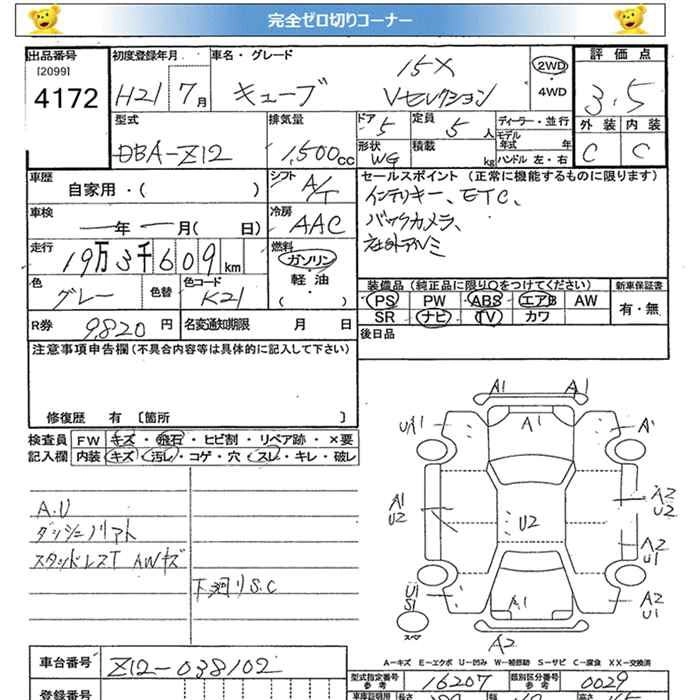 完全ゼロ切りコーナー
出品番号 初度登録年月 車名・グレード 15X 2WD 評価点
[2099]
4172 H21 7月 キューブ Vセレクション 4WD 3.5
型式 排気量 ドア 5 定員 5人 ディーラー・並行 外装 内装
モデル年式 年
DBA-Z12 1,500cc 形状 WG 積載 kg ハンドル 左・右 C C
車歴 自家用・( ) シフト A/T セールスポイント (正常に機能するものに限ります)
インテリキー、ETC、
車検 年 月( 日) 冷房 AAC バックカメラ、
社外アルミ
走行 19万3千609km 燃料 ガソリン・軽油・( )
装備品 (純正品に限り○をつけてください) 新車保証書
色 グレー 色替 色コード K21 PS PW ABS エアB AW 有・無
SR ナビ TV カワ
R券 9,820円 名変通知期限 月 日 後日品
注意事項申告欄 (不具合内容等は具体的に記入して下さい)
修復歴 有 [箇所 ]
検査員 FW キズ・飛石・ヒビ割・リペア跡・×要
記入欄 内装 キズ・汚レ・コゲ・穴・スレ・キレ・破レ
A.U
スタッドレスT AWキズ
下廻りS.C
A1 A1
UA1 A1 A1
A1 A2
U2 U2 U2
A2
U1
U1 A1 A2
S1 U1
スペア
A2
A-キズ E-エクボ U-凹み W-補修跡 S-サビ C-腐食 XX-交換済
車台番号 Z12-038102
型式指定番号 参考 16207 類別区分番号 参考 0029
登録番号